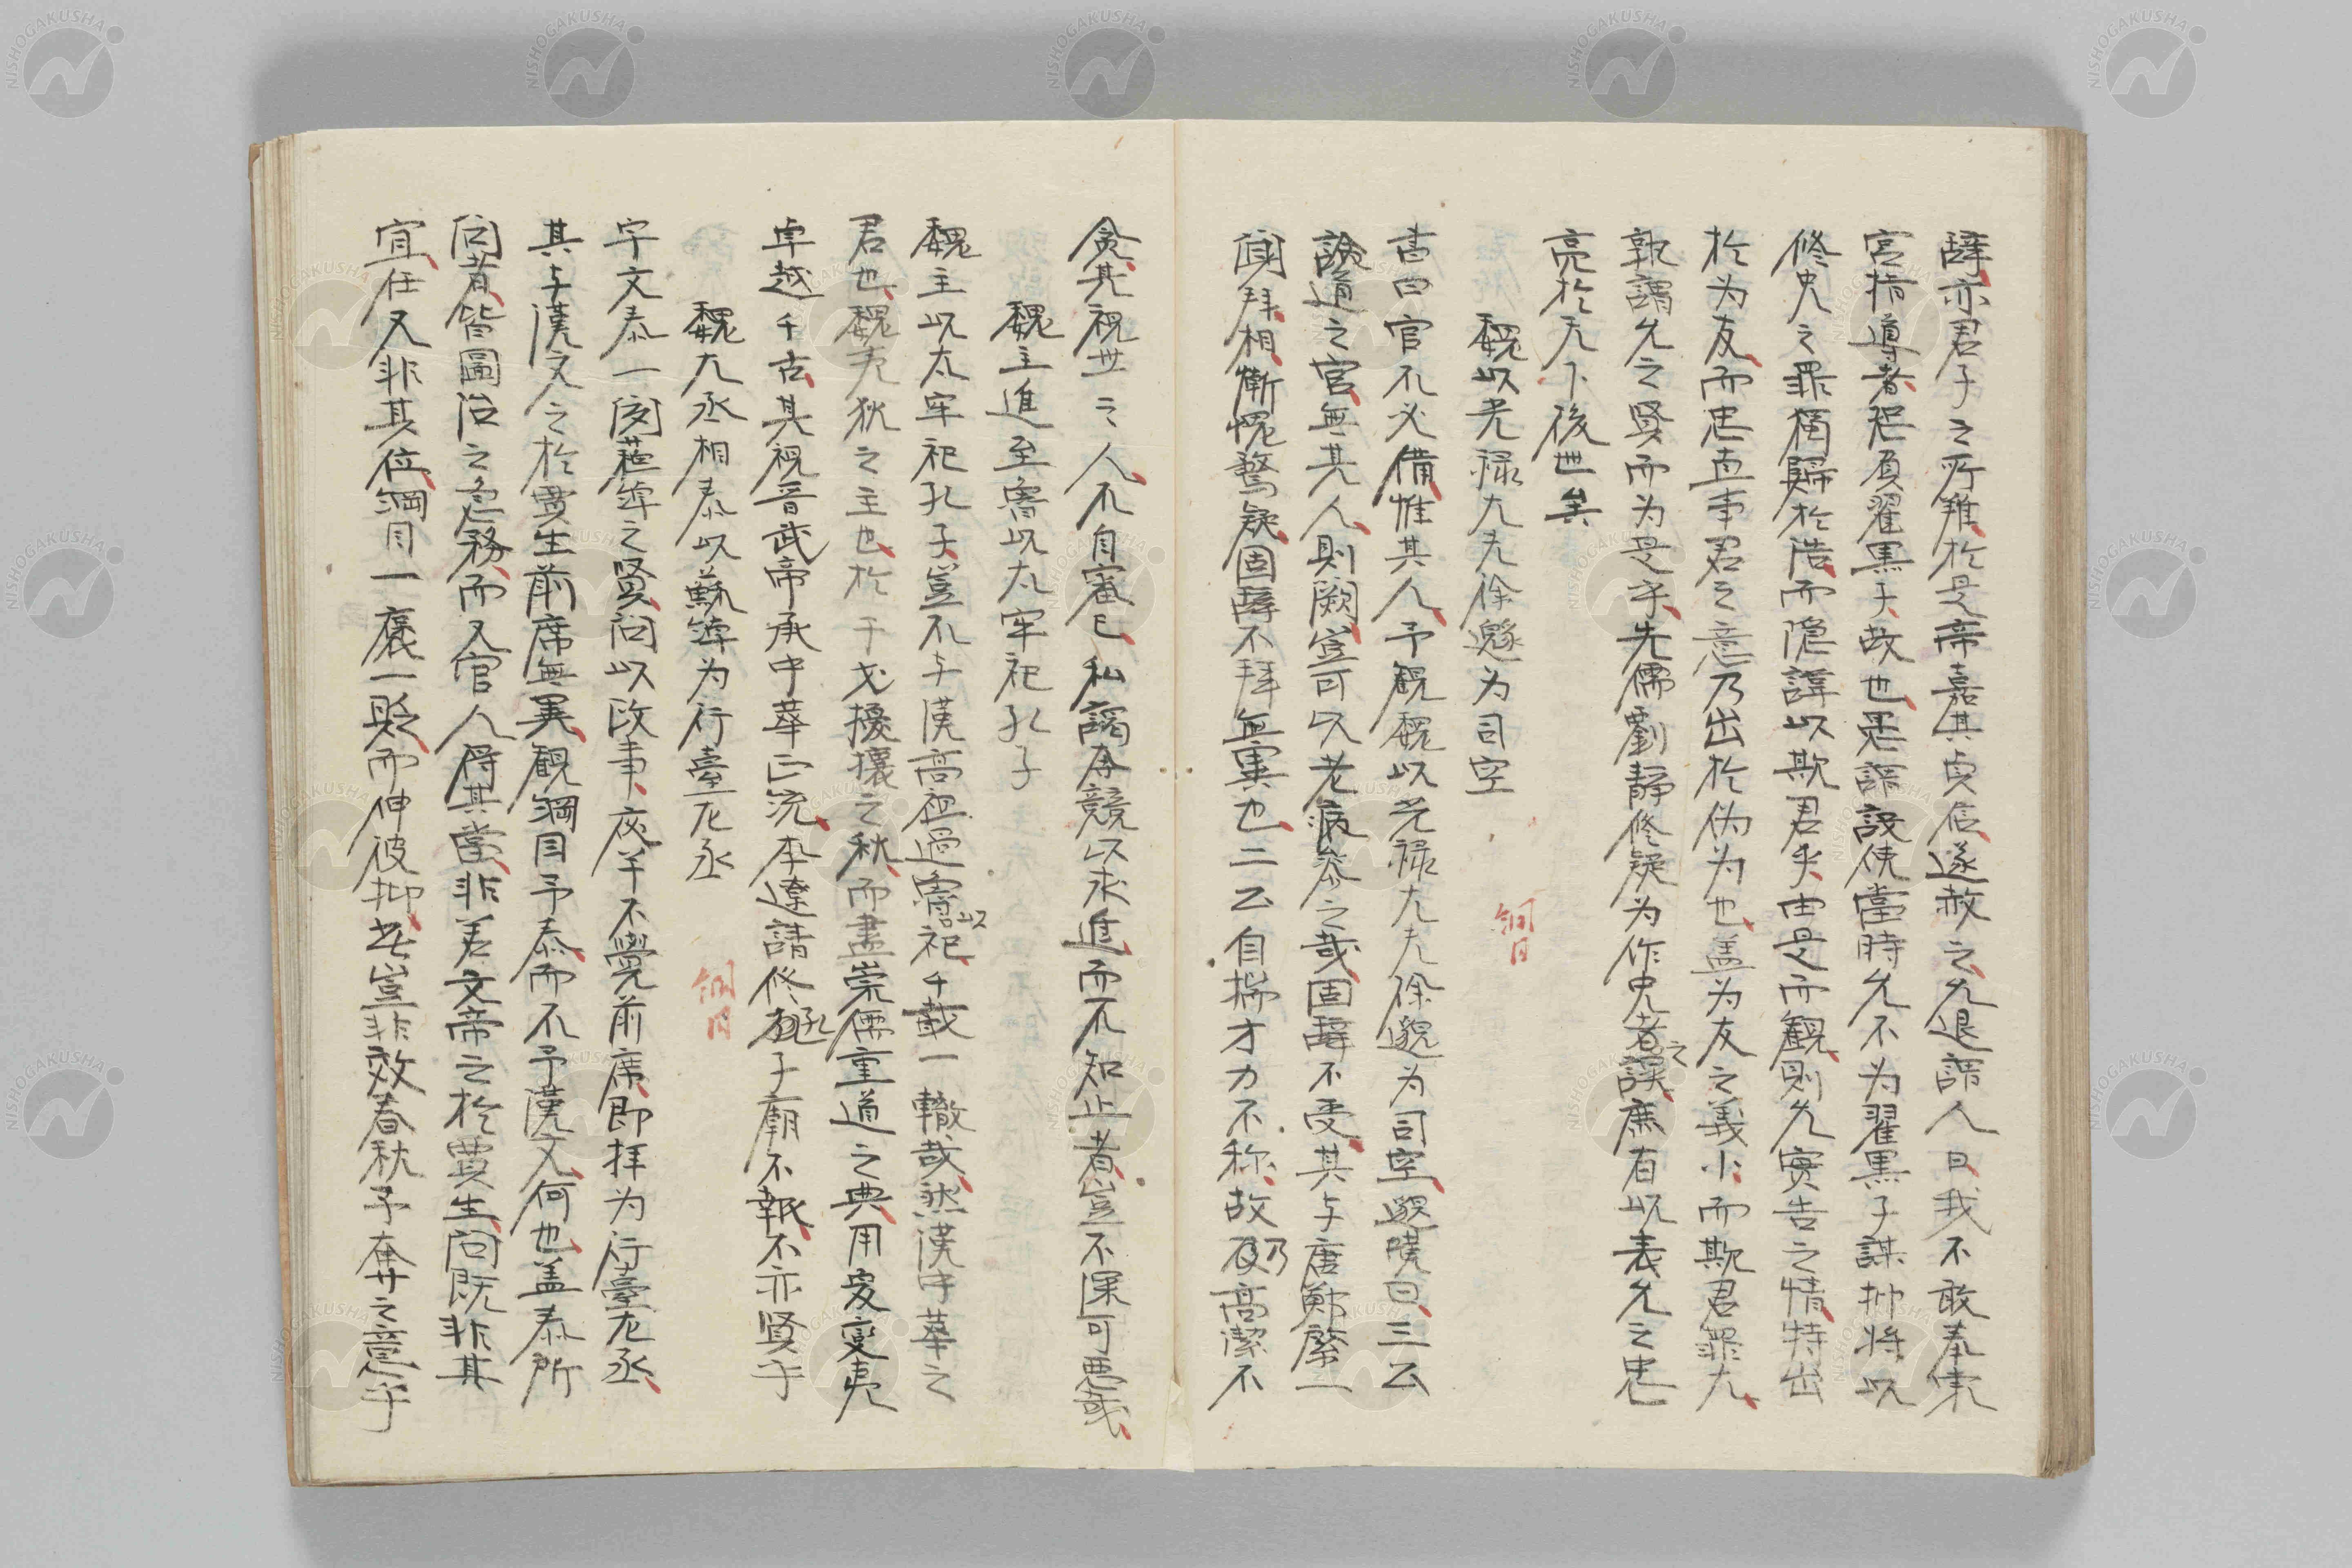 辞亦君子之所難於是帝嘉其貞信遂赦之允退謂人曰我不敢奉東
宮指導者恐負翟黒子故也是謂設使當時允不为翟黒子謀抑将以
修史之罪獨歸於浩而隠諱以欺君乎由是而観則允実告之情特出
於为友而忠直事君之意乃出於偽为也盖为友之義小而欺君罪大
孰謂允之賢而为是乎先儒劉静修疑为作史者之誤庶有以表允之忠
亮於天下後世矣
魏以光禄大夫徐邈为司空 綱目
書曰官不必備惟其人予観魏以光禄大夫徐邈为司空邈嘆曰三公
論道之官無其人則闕豈可以老病忝之哉固辞不受其与唐鄭綮一
聞拜相慚愧驚疑固辞不拜無異也二公自揣才力不称故 高潔不
貪其視世之人不自審已私謁奔競以求進而不知止者豈不深可悪哉
魏主進至魯以太牢祀孔子
魏主以太牢祀孔子豈不与漢高祖過魯以祀千載一轍哉然漢中華之
君也魏夷狄之主也於干戈擾攘之秋而盡崇儒重道之典用夏変夷
卓越千古其視晋武帝承中華正流李遼請修孔子廟不報不亦賢乎
魏大丞相泰以蘇綽为行臺左丞 綱目
宇文泰一聞蘇綽之賢問以政事夜半不覺前席即拝为行臺左丞
其与漢文之於賈生前席無異観綱目予泰而不予漢文何也盖泰所
問者皆圖治之急務而又官人得其當非若文帝之於賈生問既非其
宜任又非其位綱目一褒一貶而伸彼抑此豈非效春秋予奪之意乎